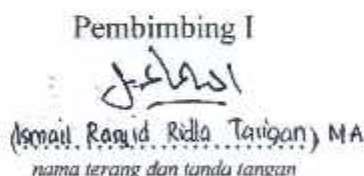 Pembimbing I
(Ismail Rasyid Ridla Tarigan) MA
nama terang dan tanda tangan